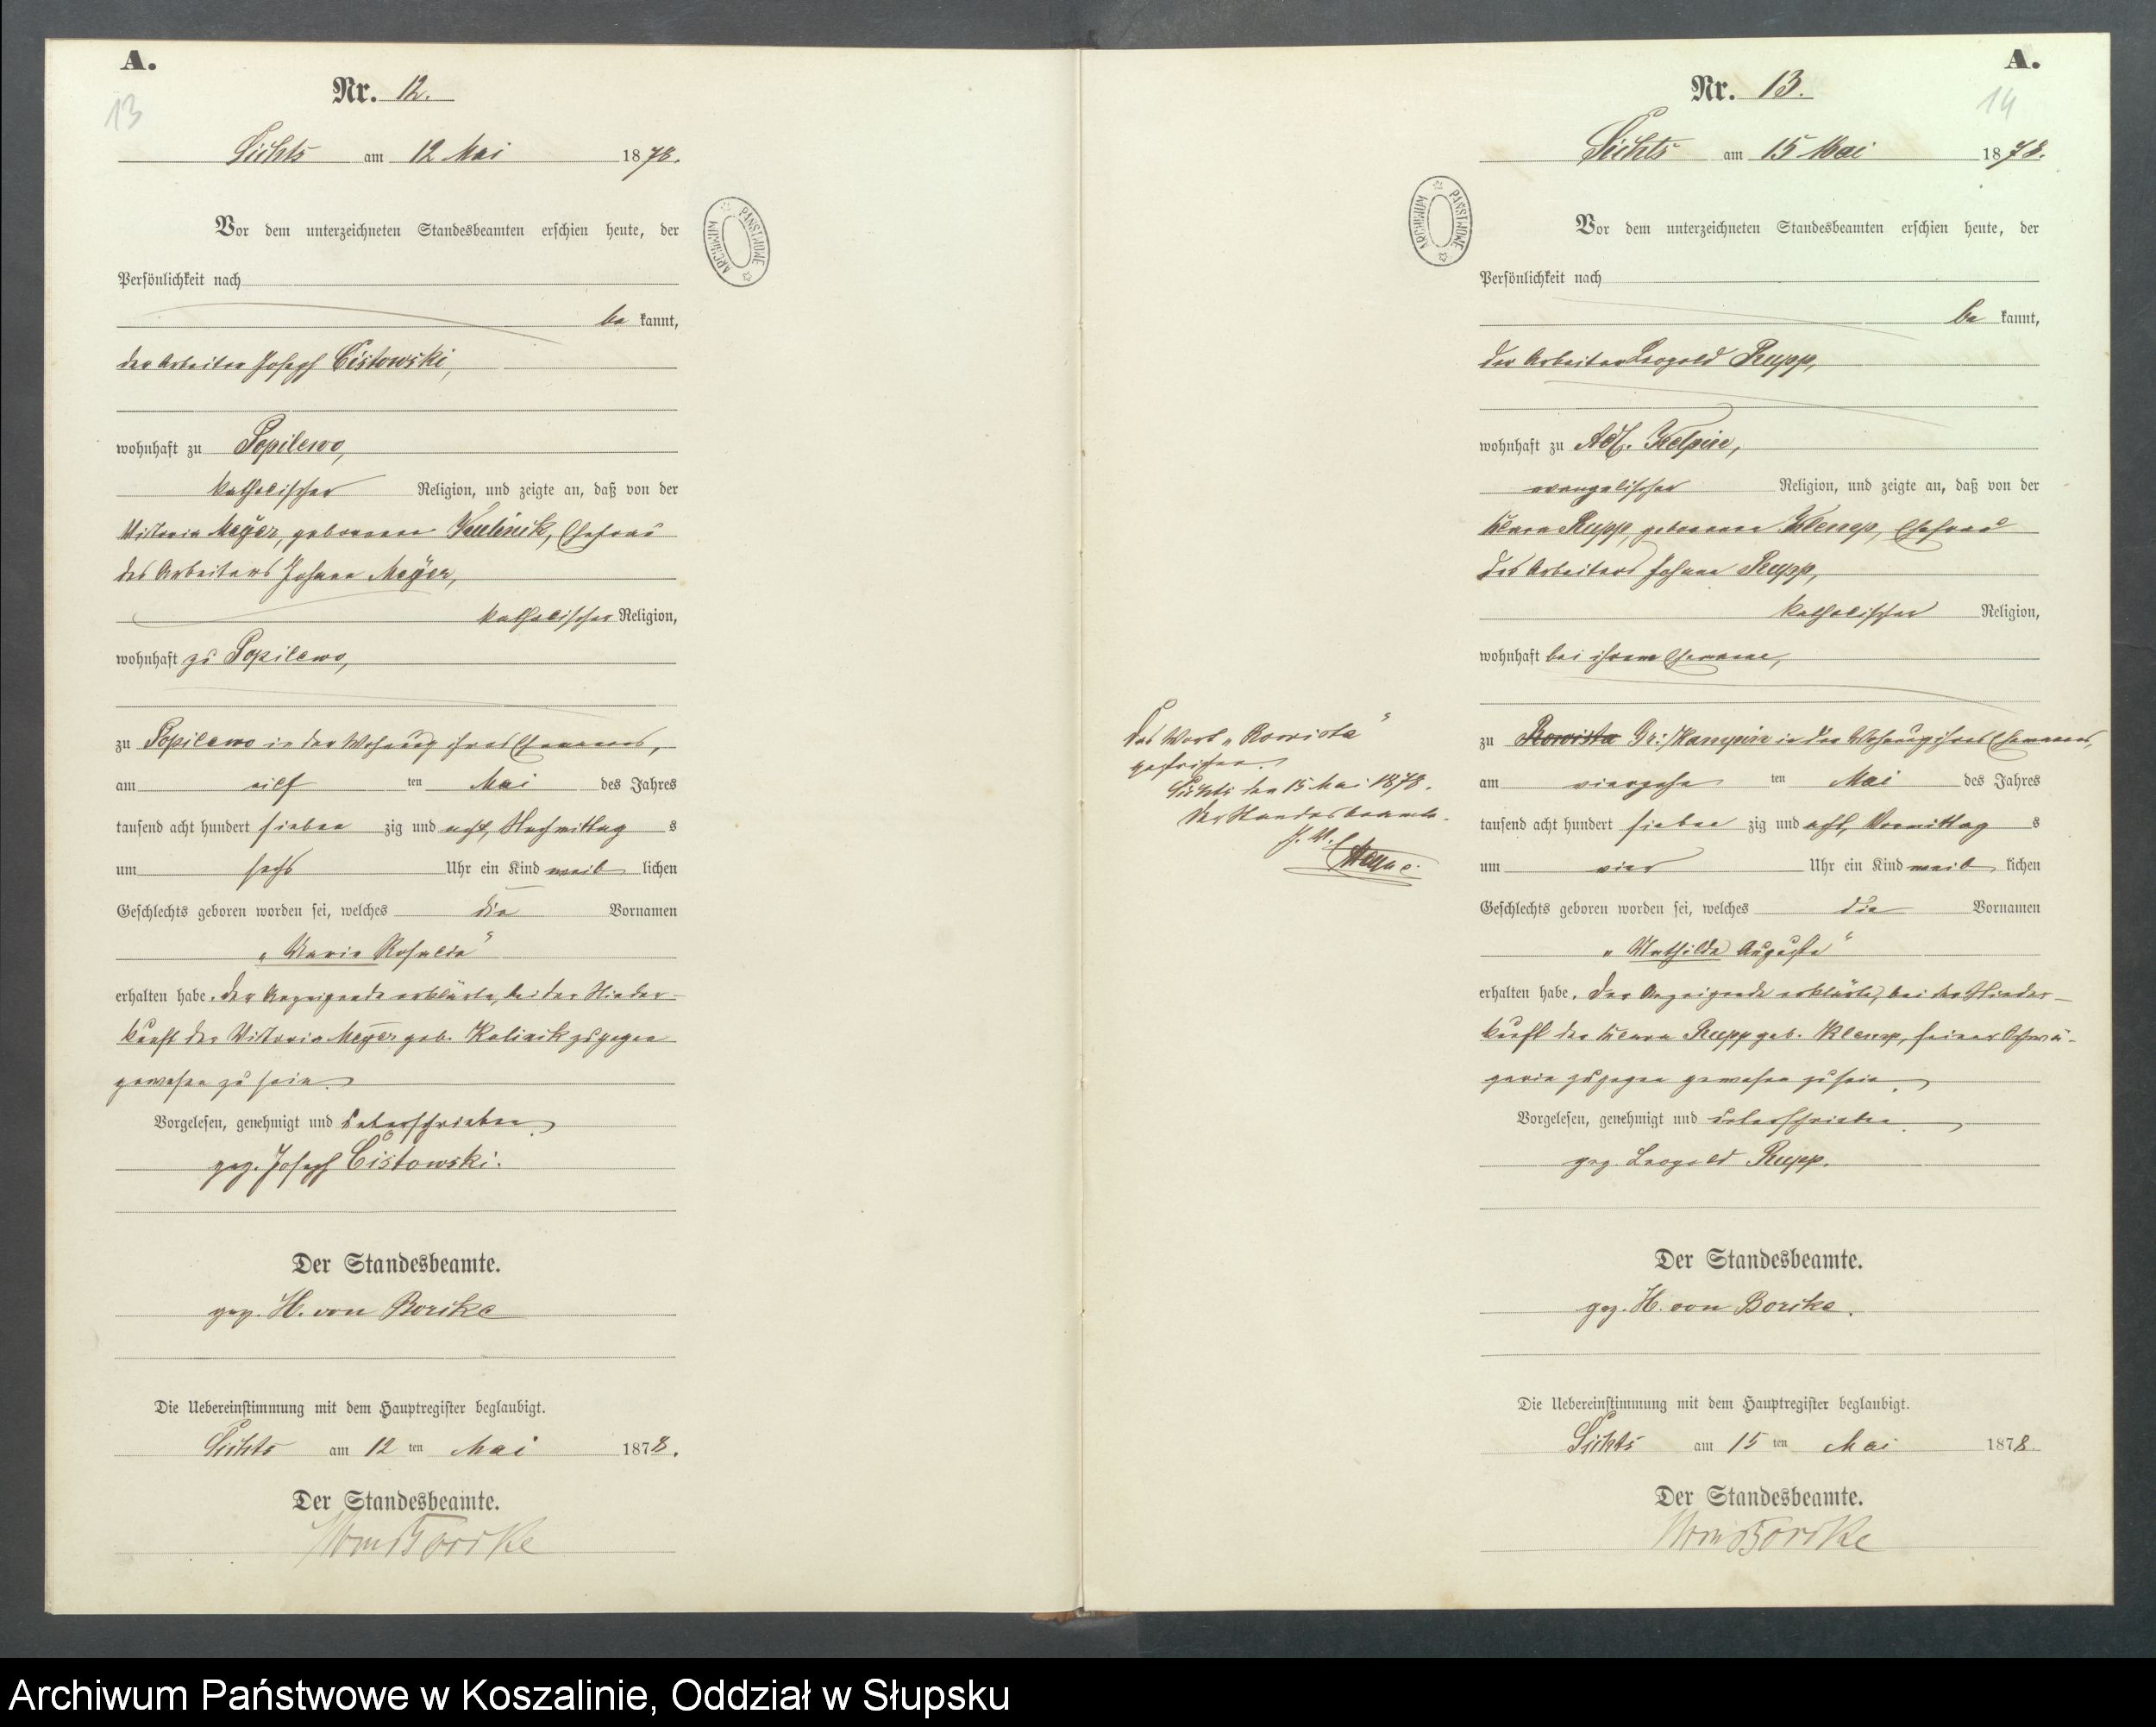 A.
13
Nr. 12.
am 12 Mai 1878.
Vor dem unterzeichneten Standesbeamten erschien heute, der
Persönlichkeit nach
be kannt,
der Arbeiter Joseph Cistowski,
wohnhaft zu Sopilewo,
katholischer Religion, und zeigte an, daß von der
Viktoria Meyer, geborenen Kulinik, Ehefrau
des Arbeiters Johann Meyer,
katholischer Religion,
wohnhaft zu Sopilewo,
zu Sopilewo in der Wohnung ihres Ehemannes,
am eilf ten Mai des Jahres
tausend acht hundert sieben zig und acht, Nachmittag s
um sechs Uhr ein Kind weib lichen
Geschlechts geboren worden sei, welches die Vornamen
„Maria Rosalia"
erhalten habe. Der Anzeigende erklärte, bei der Nieder-
kunft der Viktoria Meyer geb. Kulinik zugegen
gewesen zu sein.
Vorgelesen, genehmigt und unterschrieben
gez. Joseph Cistowski.
Der Standesbeamte.
gez. H. von
Die Uebereinstimmung mit dem Hauptregister beglaubigt.
am 12 ten Mai 1878.
Der Standesbeamte.
ARCHIWUM PAŃSTWOWE
A.
14
Nr. 13.
am 15 Mai 1878.
Vor dem unterzeichneten Standesbeamten erschien heute, der
Persönlichkeit nach
be kannt,
der Arbeiter Leopold Rupp,
wohnhaft zu Adl.
evangelischer Religion, und zeigte an, daß von der
Rupp, geborenen Klemp, Ehefrau
des Arbeiters Johann Rupp,
katholischer Religion,
wohnhaft bei ihrem Ehemanne,
zu Rowista Gr: in der Wohnung ihres Ehemannes,
am vierzehn ten Mai des Jahres
tausend acht hundert sieben zig und acht, Vormittag s
um vier Uhr ein Kind weib lichen
Geschlechts geboren worden sei, welches die Vornamen
„Mathilde Auguste"
erhalten habe. Der Anzeigende erklärte, bei der Nieder-
kunft der Rupp geb. Klemp, seiner Schwä-
gerin zugegen gewesen zu sein.
Vorgelesen, genehmigt und unterschrieben
gez. Leopold Rupp.
Der Standesbeamte.
gez. H. von
Die Uebereinstimmung mit dem Hauptregister beglaubigt.
am 15 ten Mai 1878
Der Standesbeamte.
ARCHIWUM PAŃSTWOWE
Das Wort „Rowista"
gestrichen.
den 15 Mai 1878.
Der Standesbeamte.
Archiwum Państwowe w Koszalinie, Oddział w Słupsku